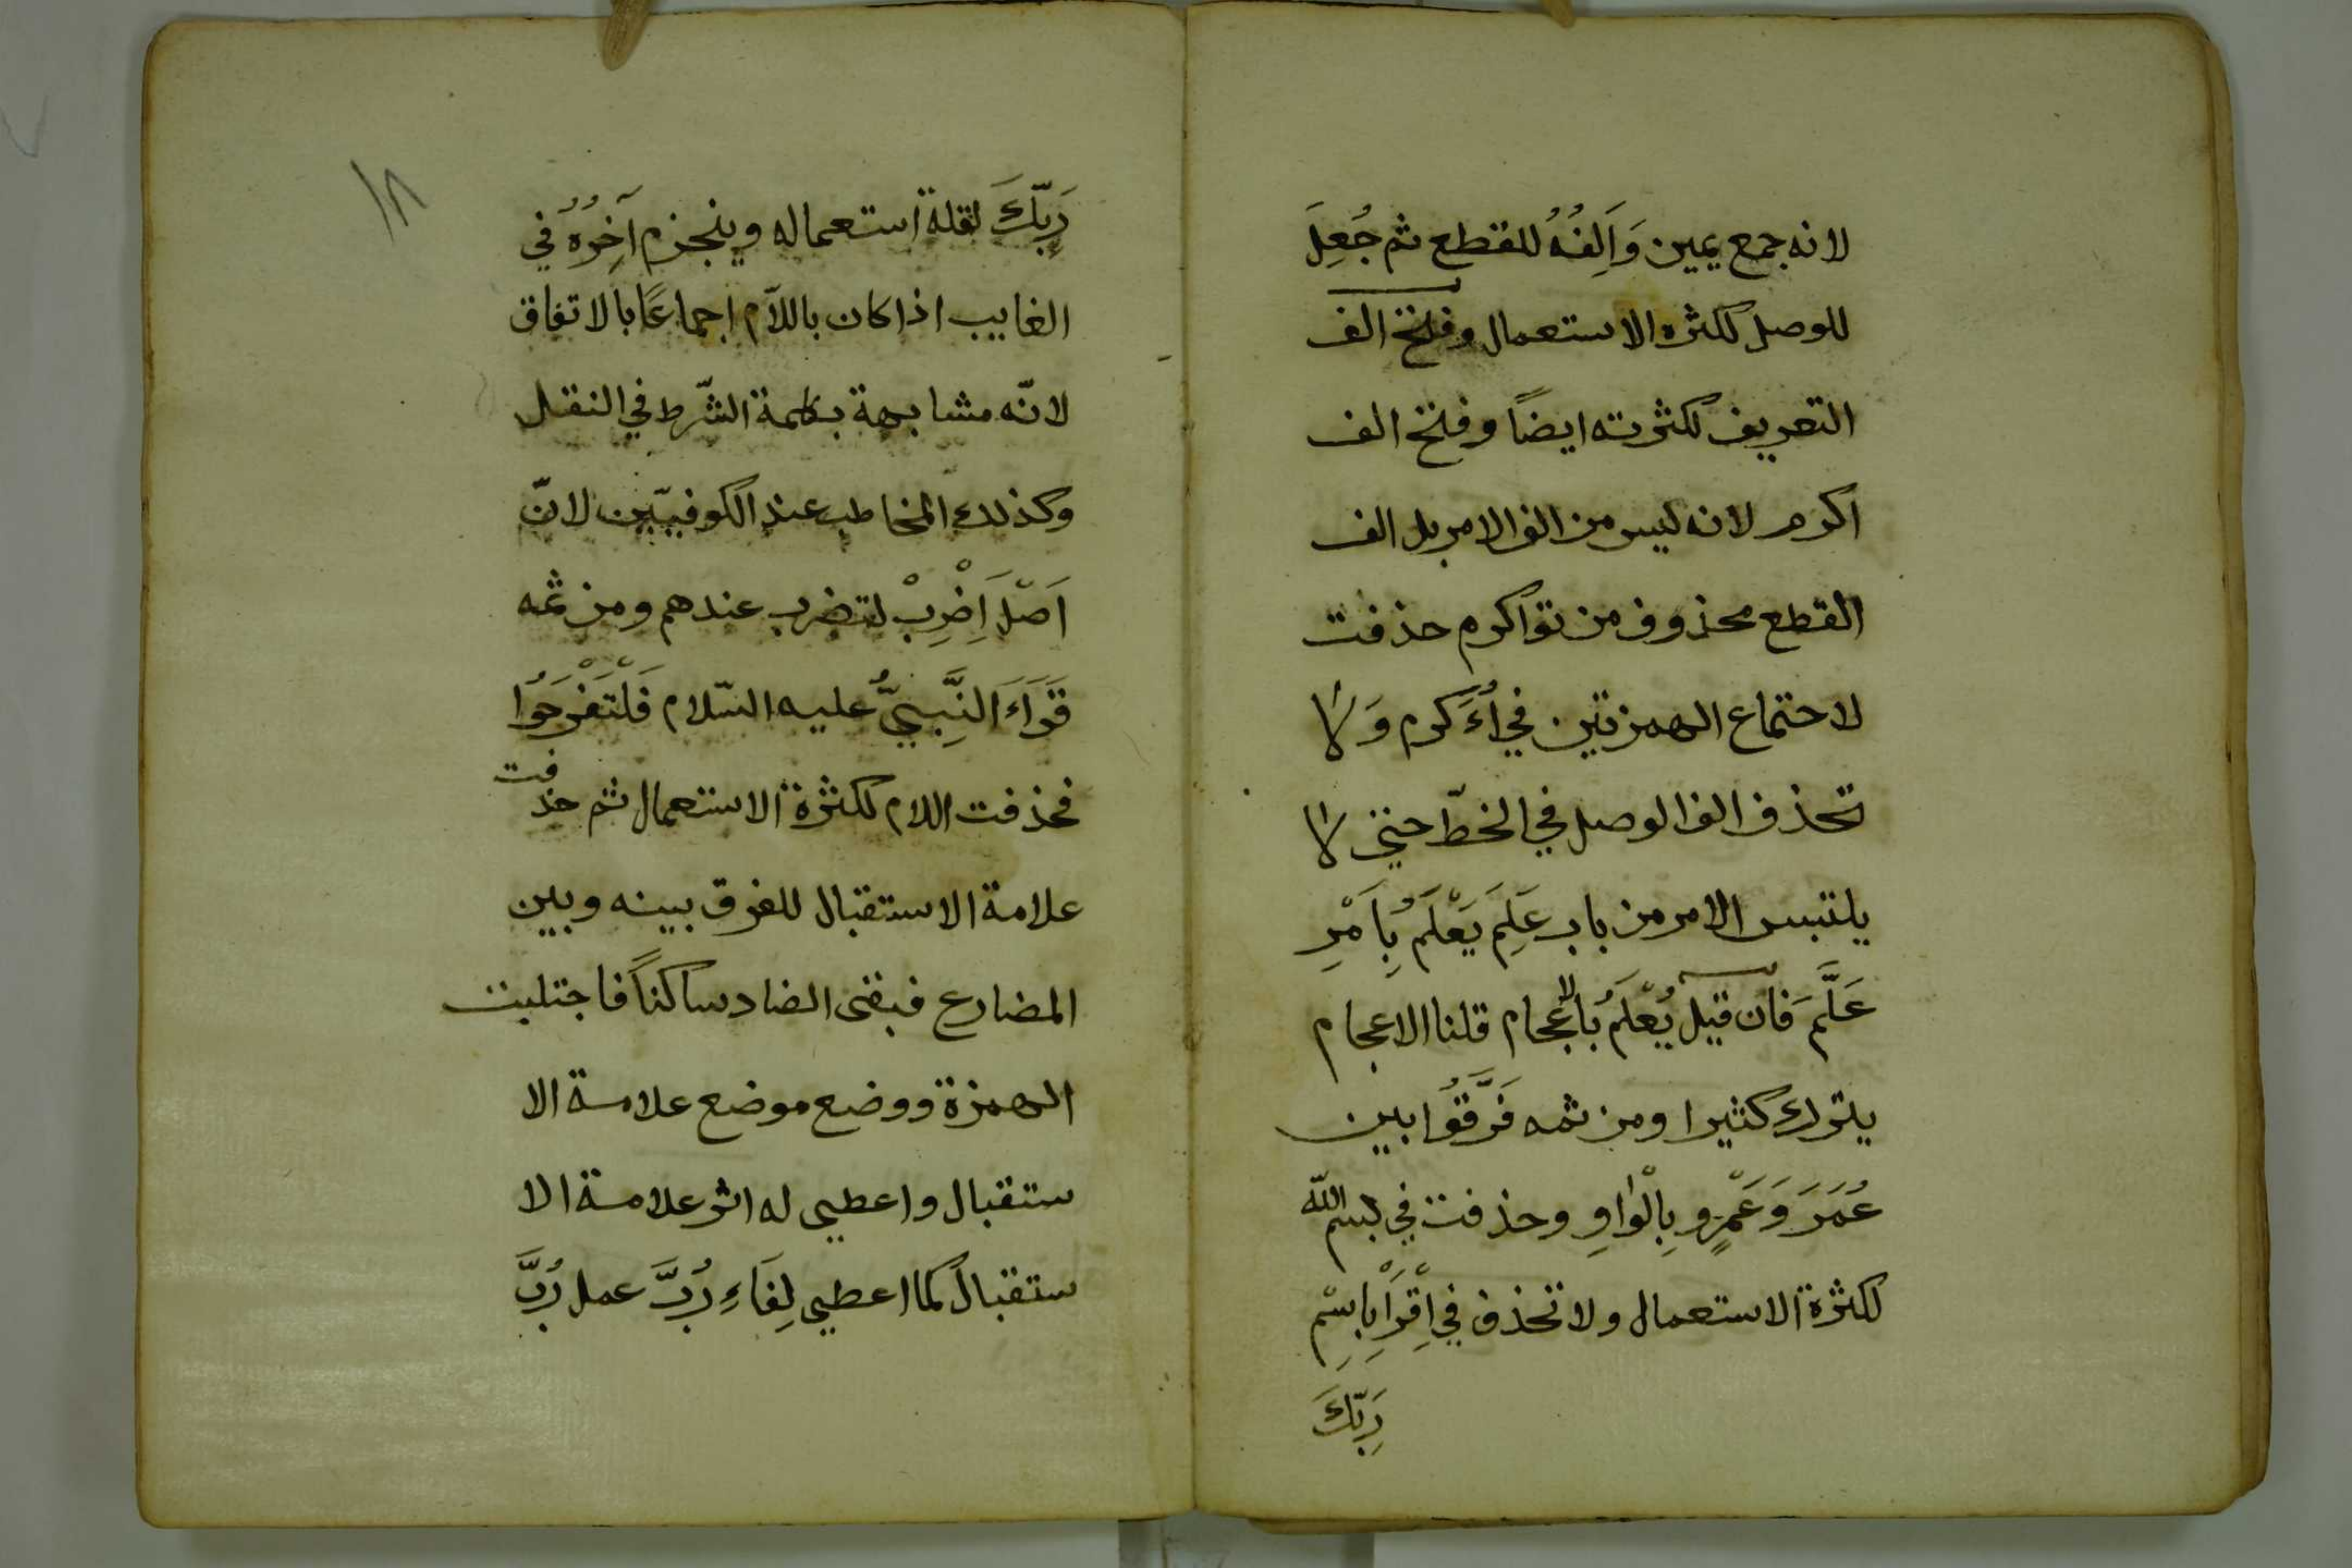 لانه جمع يمين وَاَلِفُهُ للقطع ثم جُعِلَ
للوصل لكثره الاستعمال وفتح الف
التعريف لكثرته ايضاً وفتح الف
اكرم لانه ليس من الف الامر بل الف
القطع محذوف من تؤاكرم حذفت
لاجتماع الهمزتين في اُءَكرم وَلا
تحذف الف الوصل في الخطّ حتي لا
يلتبس الامر من باب عَلِمَ يَعْلَمُ بِاَمْرِ
عَلَّمَ فان قيل يُعْلَمُ بالاعجام قلنا الاعجام
يترك كثيرا ومن ثمه فَرَّقُوا بين
عُمَرَ وَعَمْرٍو بِالْوَاوِ وحذفت في بسم الله
لكثرة الاستعمال ولا تحذف في اِقْرَاْ بِاسْمِ
رَبِّكَ
رَبِّكَ لقلة استعماله وينجزم آخِرُهُ في
الغايب اذا كان باللاّم اجماعًا بالاتفاق
لانّه مشابهة بكلمة الشّرط في النقل
وكذلك المخاطب عند الكوفييّن لانّ
اَصْلَ اِضْرِبْ لتضرب عندهم ومن ثمه
قَرَاءَ النَّبِيُّ عليه السّلام فَلْتَفْرَحُوا
فحذفت اللام لكثرة الاستعمال ثم حذفت
علامة الاستقبال للفرق بينه وبين
المضارع فبقى الضاد ساكناً فاجتلبت
الهمزة ووضع موضع علامة الا
ستقبال واعطي له اثر علامة الا
ستقبال كما اعطي لِفَاءِ رُبَّ عمل رُبَّ
١٨